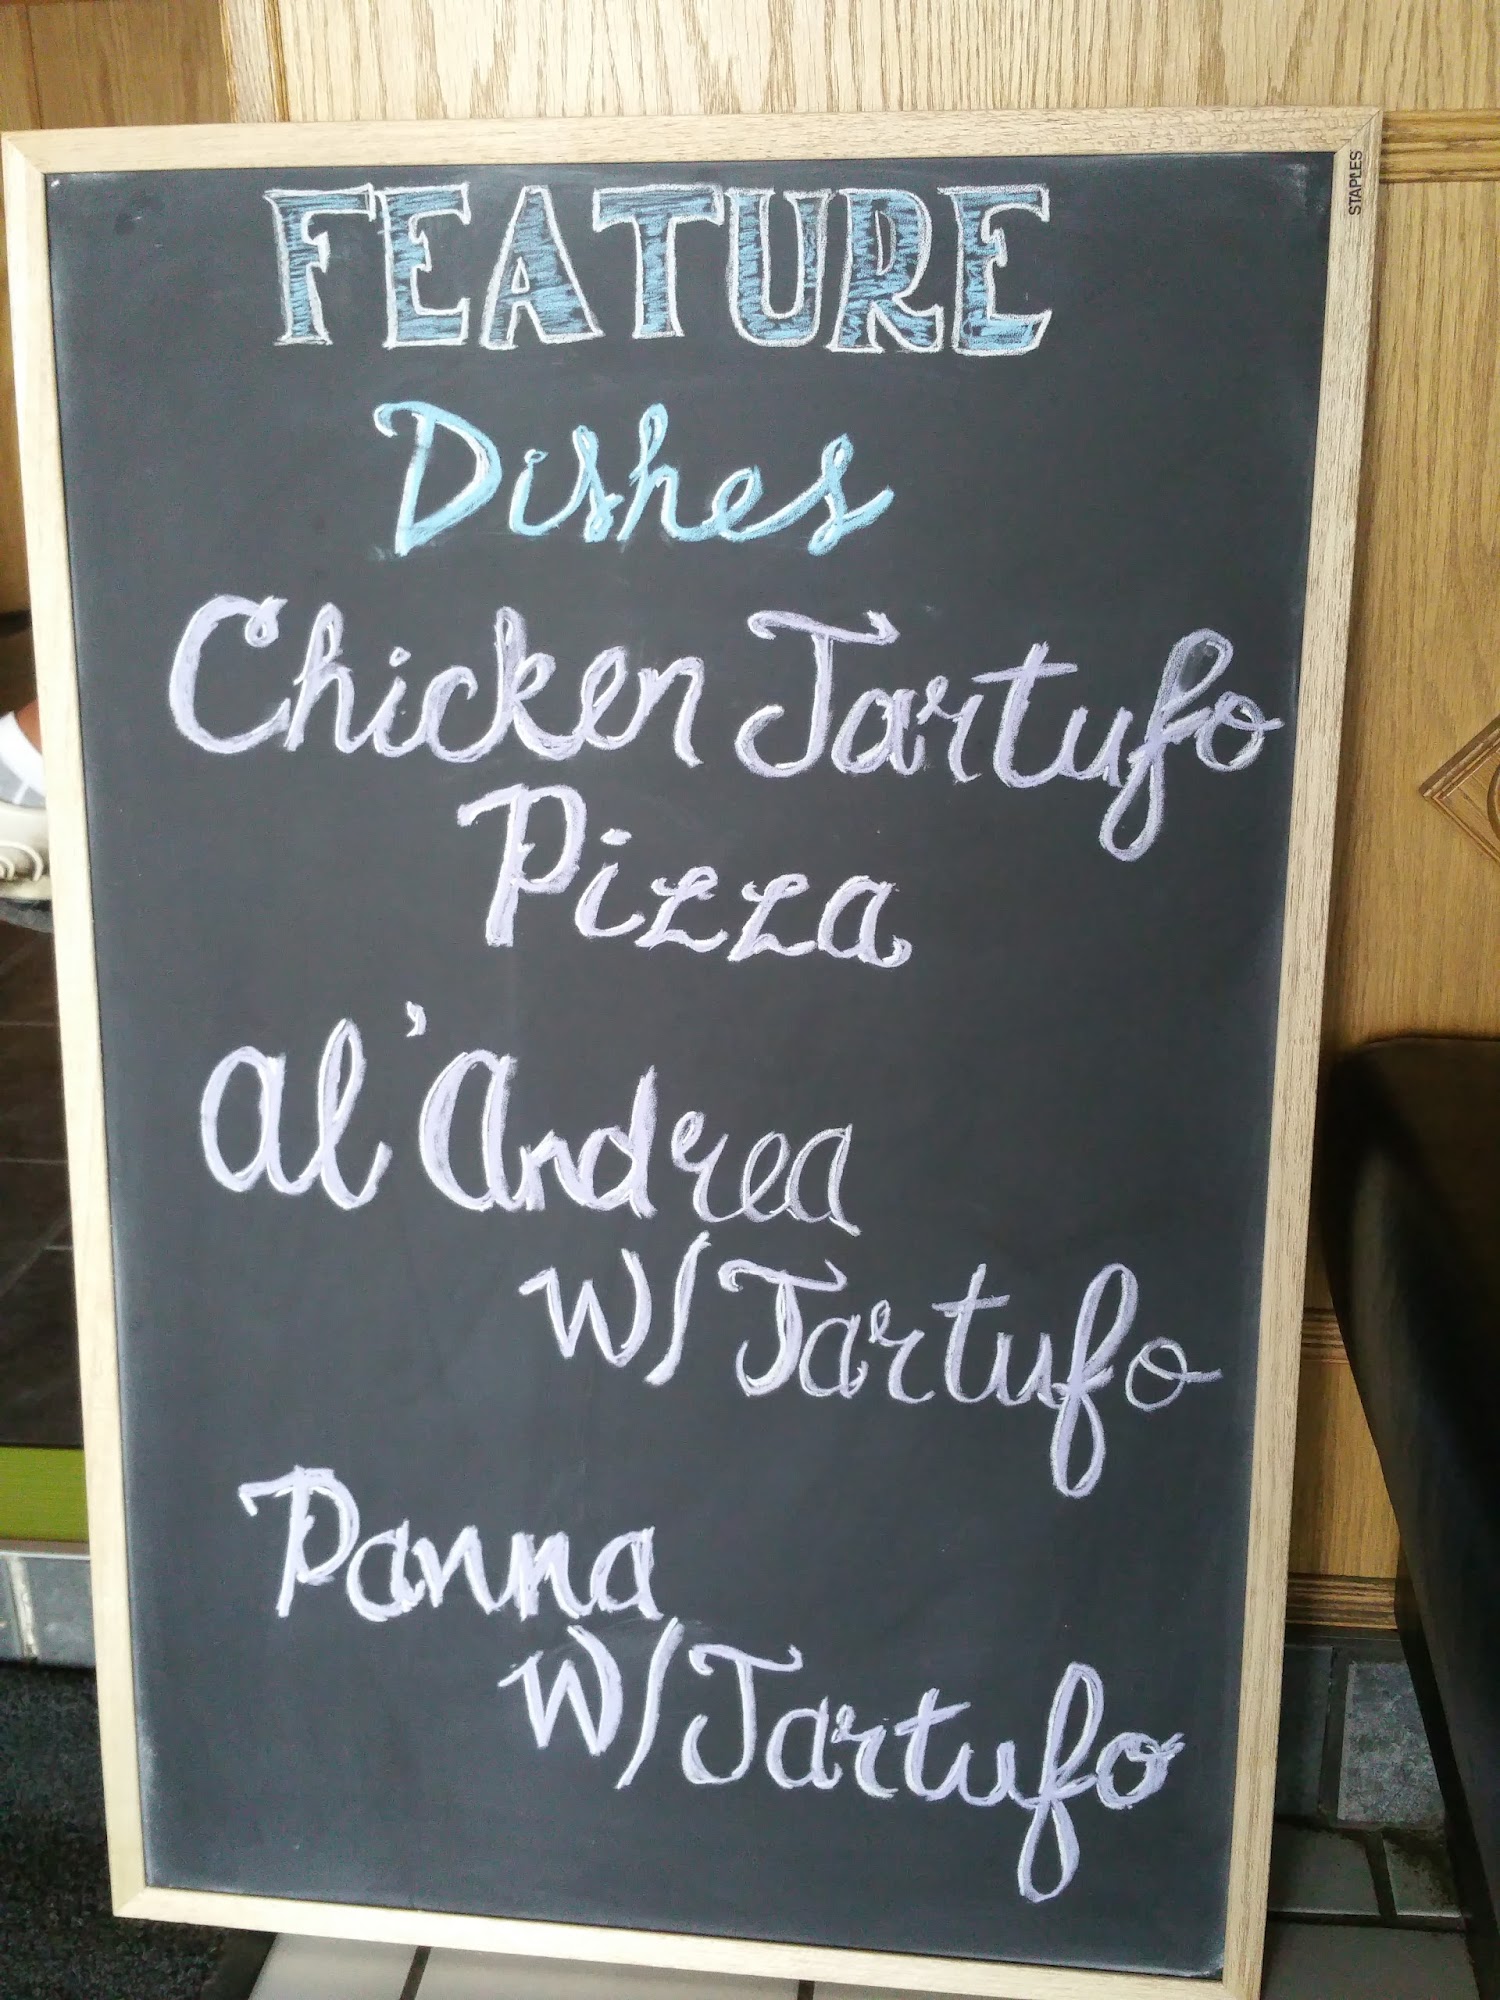 STAPLES
FEATURE
Dishes
Chicken Tartufo
Pizza
Al'Andrea
W/Tartufo
Panna
W/Tartufo